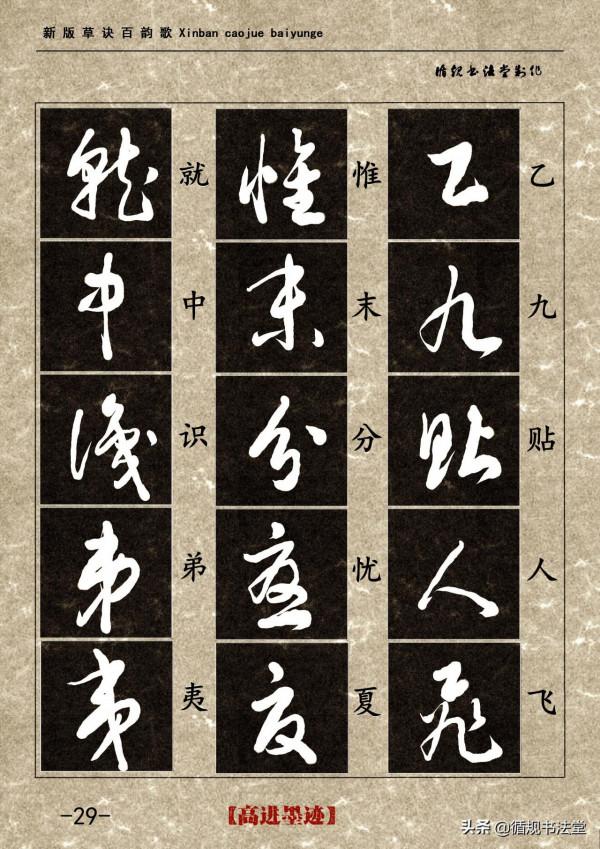 新版草诀百韵歌 Xinban caojue baiyunge
循规书法堂制作
乙九贴人飞
乙九贴人飞
惟末分忧夏
惟末分忧夏
就中识弟夷
就中识弟夷
-29-
【高进墨迹】
头条 @循规书法堂